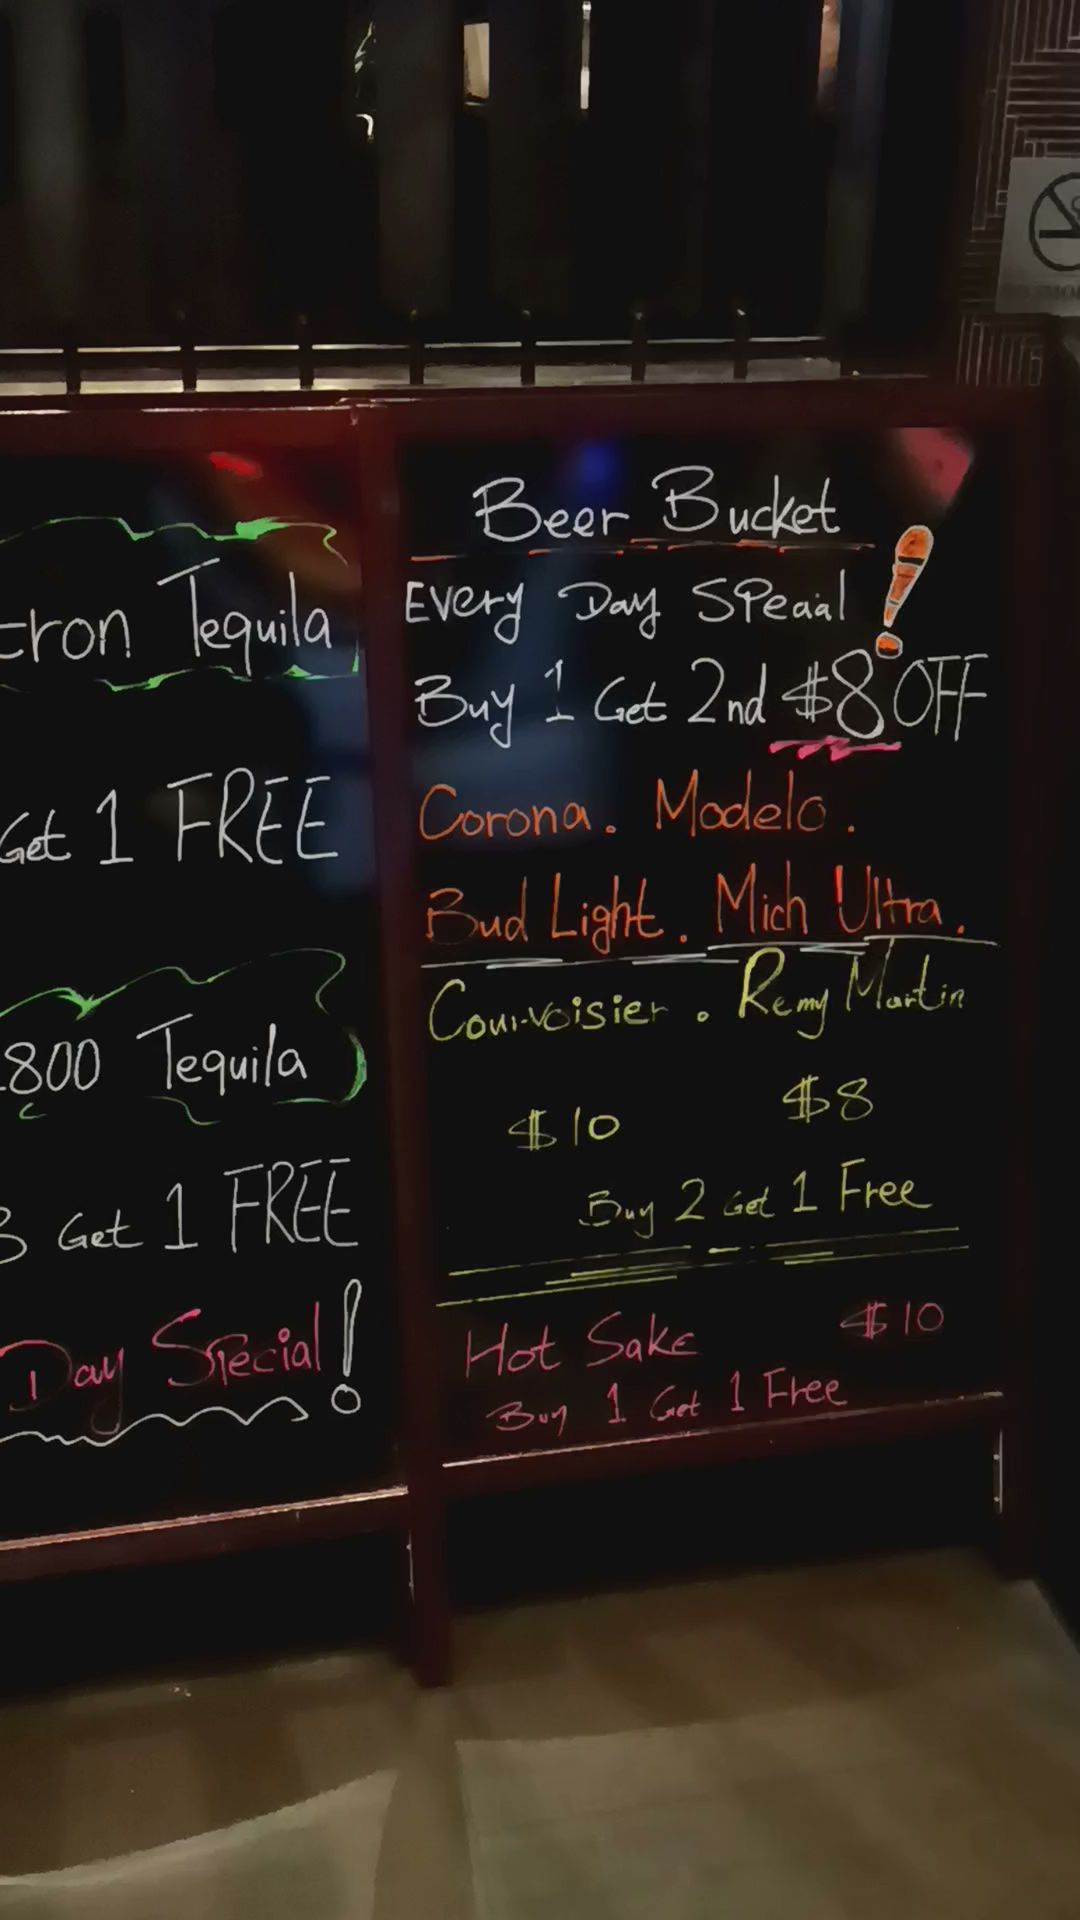 Tequila
Get 1 FREE
800 Tequila
Get 1 FREE
Day Special!
Beer Bucket
Every Day Special!
Buy 1 Get 2nd $8 OFF
Corona. Modelo.
Bud Light. Mich Ultra.
Courvoisier. Remy Martin
$10 $8
Buy 2 Get 1 Free
Hot Sake $10
Buy 1 Get 1 Free